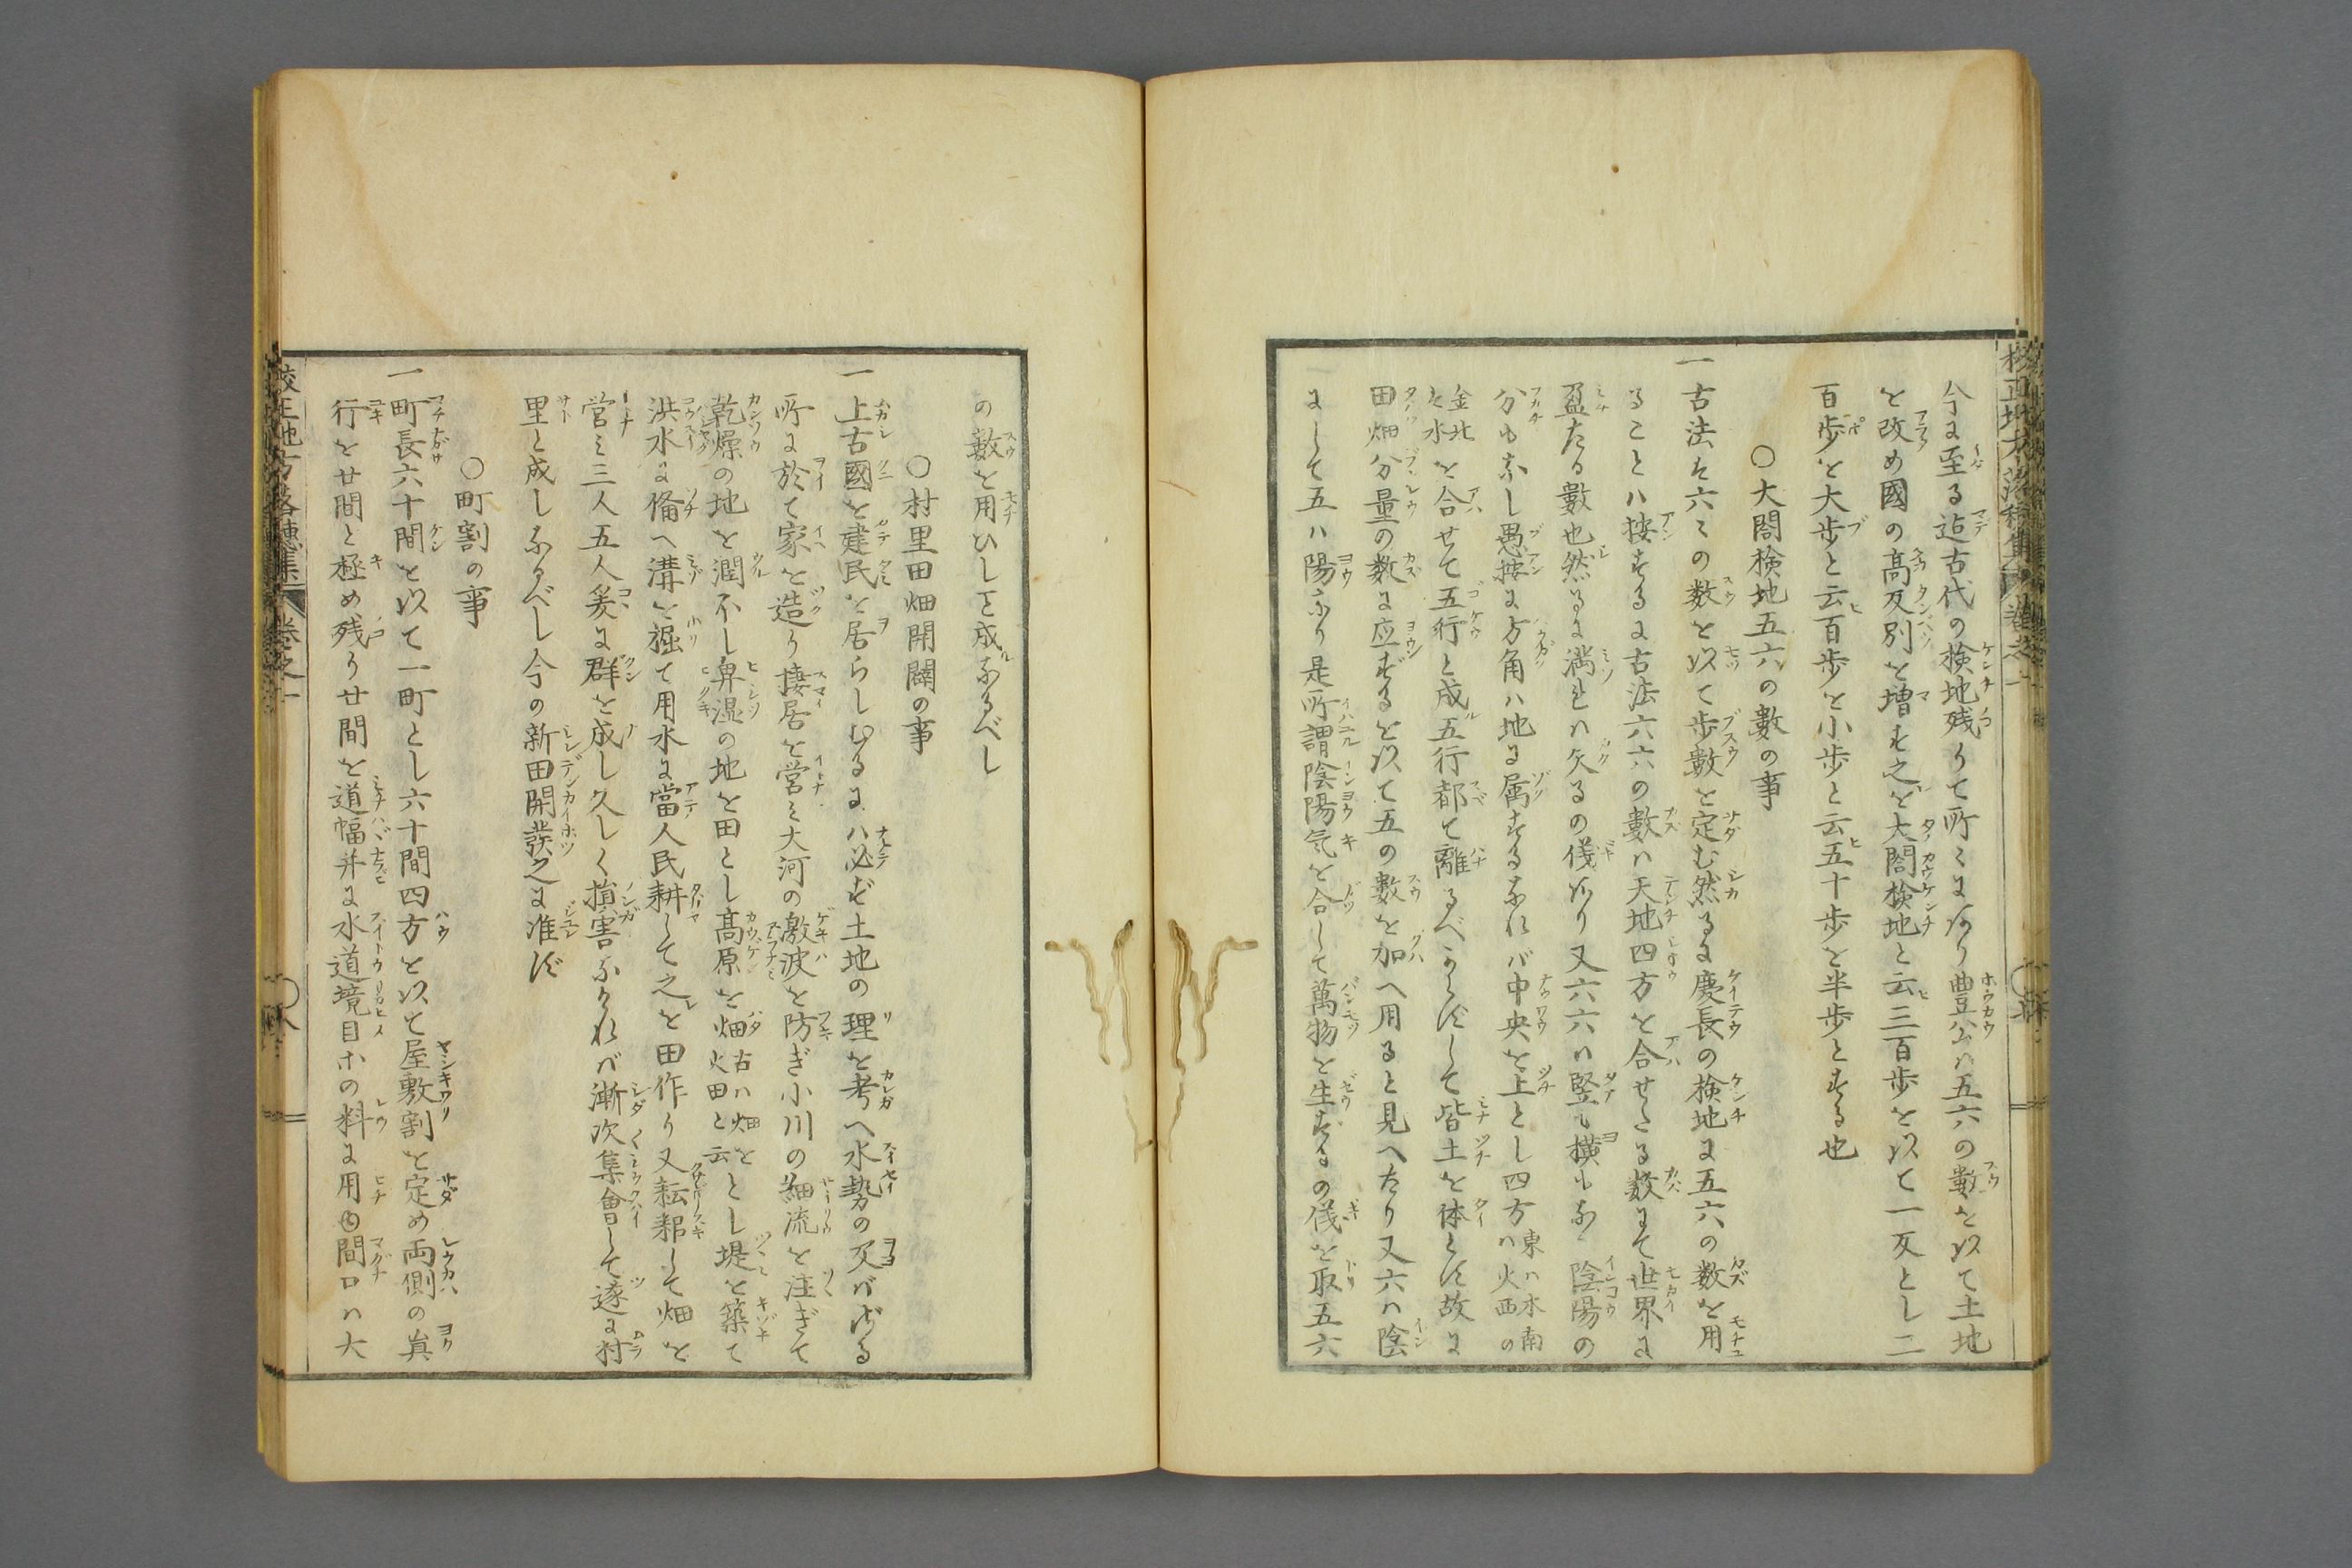 校正地方落穂集 巻之一
今に至る迠古代の検地残りて所々にあり豊公ハ五六の數を以て土地
を改め國の髙反別を増す之を大閤検地と云三百歩を以て一反とし二
百歩を大歩と云百歩を小歩と云五十歩を半歩とする也
○大閤検地五六の數の事
一古法は六々の数を以て歩數を定む然るに慶長の検地に五六の数を用
ることハ按するに古法六六の數ハ天地四方を合せたる数にて世界に
盈たる數也然るに満れハ欠るの儀あり又六六ハ竪も横もなく陰陽の
分もなし愚按に方角ハ地に属するなれバ中央を土とし四方東ハ木南ハ火西の
金北は水を合せて五行と成五行都て離るべからずして皆土を体とす故に
田畑分量の数に應ずるを以て五の數を加へ用ると見へたり又六ハ陰
にして五ハ陽なり是所謂陰陽気を合して萬物を生ずるの儀を取五六
の數を用ひしと成なるべし
○村里田畑開闢の事
一上古國を建民を居らしむるにハ必ず土地の理を考へ水勢の及バざる
所に於て家を造り棲居を営ミ大河の激波を防ぎ小川の細流を注ぎて
乾燥の地を潤不し鼻湿の地を田とし髙原を畑古ハ畑を火田と云とし堤を築て
洪水に俻へ溝を掘て用水に當人民耕して之を田作り又耘耜して畑を
営ミ三人五人爰に群を成し久しく損害なけれバ漸次集會して遂に村
里と成しなるべし今の新田開發之に准ず
○町割の事
一町長六十間を以て一町とし六十間四方を以て屋敷割を定め両側の眞
行を廿間と極め残り廿間を道幅并に水道境目ホの料に用ゆ間口ハ大
校正地方落穂集 巻之一